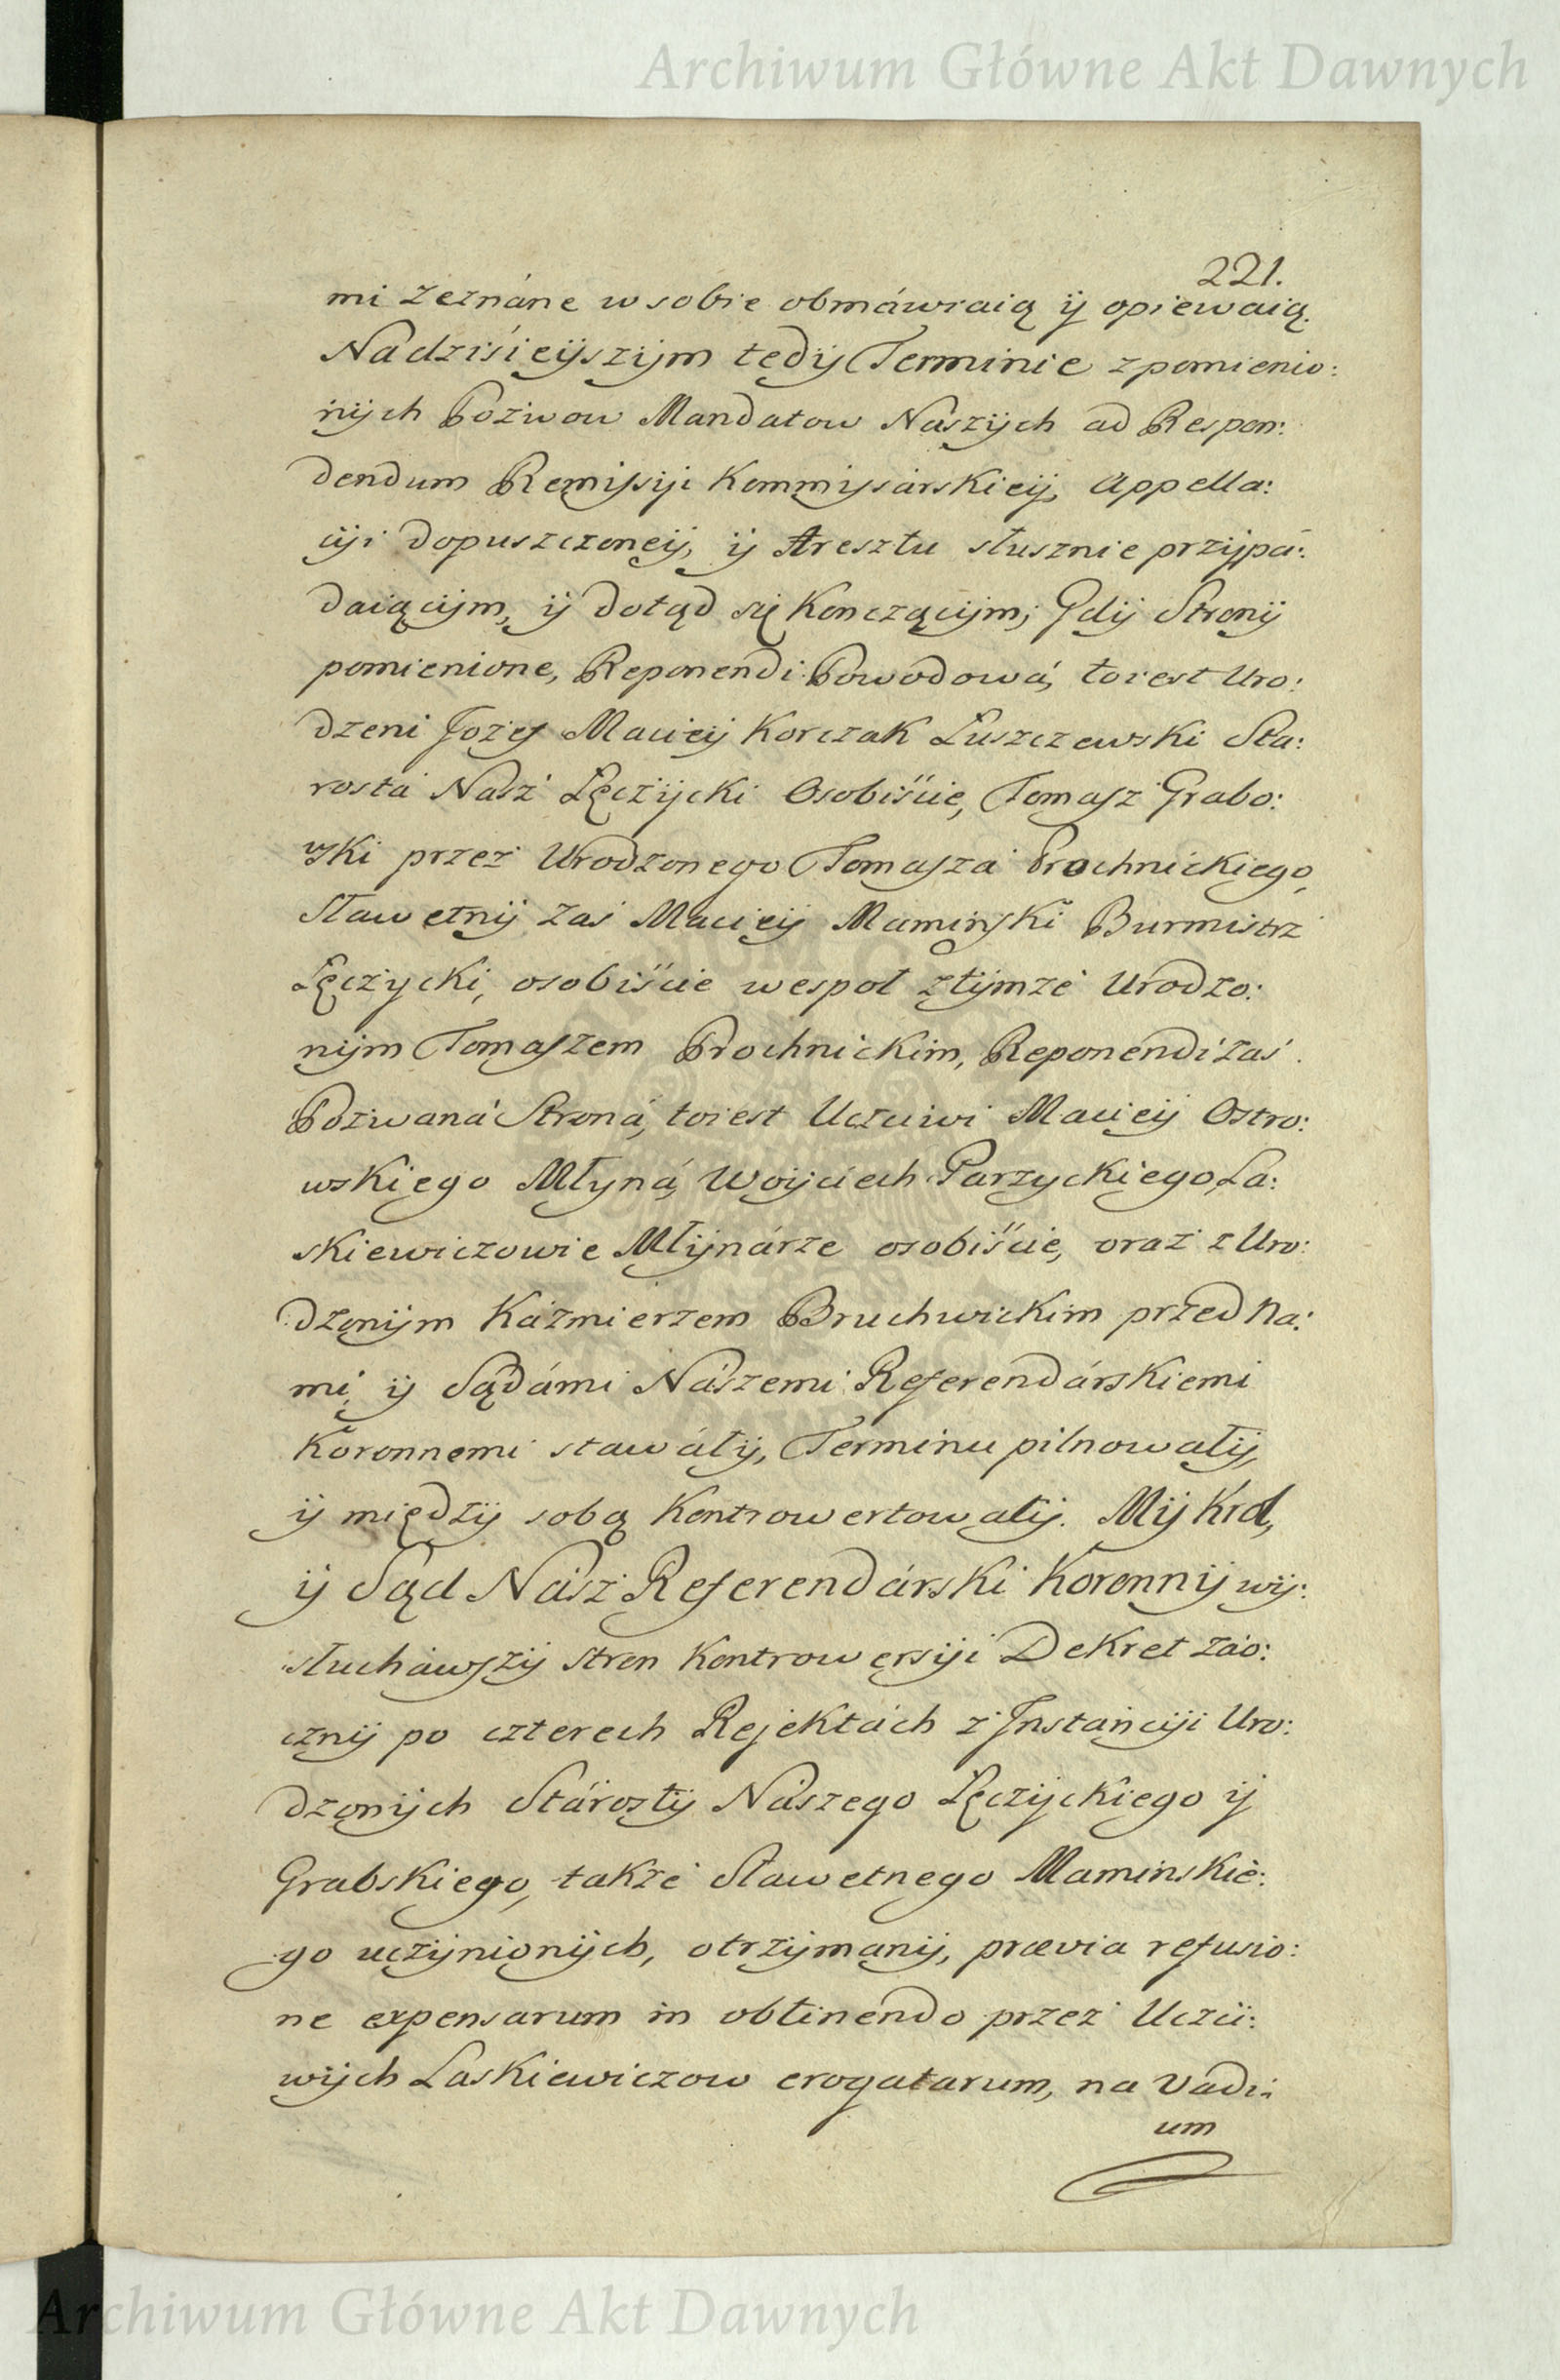 Archiwum Główne Akt Dawnych
221.
mi zeznáne w sobie obmáwiaią ÿ opiewaią.
Nadzisieÿszÿm tedÿ Terminie z pomienio:
nÿch Pozwow Mandatow Naszÿch ad Respon:
dendum Remissÿi Kommissarskieÿ, Appella:
cÿi dopuszczoneÿ, ÿ Aresztu słusznie przÿpa:
daiącÿm, ÿ dotąd się Konczącÿm; Gdÿ Stronÿ
pomienione, Reponendi Powodowá, to iest Uro:
dzeni Jozef Macieÿ Korczak Łuszczewski Sta:
rosta Nasz Łęczÿcki Osobiście, Tomasz Grabo:
wski przez Urodzonego Tomasza Prochnickiego,
Sławetnÿ zaś Macieÿ Maminski Burmistrz
Łęczycki, osobiście wespoł z tÿmże Urodzo:
nÿm Tomaszem Prochnickim, Reponendi zaś
Pozwaná Stroná, to iest Uczciwi Macieÿ Ostro:
wskiego Młyná, Woÿciech Parzyckiego La:
skiewiczowie Młÿnárze osobiście, oraz z Uro:
dzonÿm Kaźmierzem Bruchwickim przed Na:
mi, ÿ Sądámi Nászemi Referendárskiemi
Koronnemi stawáłÿ, Terminu pilnowałÿ,
ÿ międzÿ sobą Kontrowertowałÿ. Mÿ Krol,
ÿ Sąd Nasz Referendárski Koronnÿ wÿ:
słuchawszÿ stron Kontrowersÿi Dekret zao:
cznÿ po czterech Rejektách z Instancÿi Uro:
dzonÿch Stárostÿ Nászego Łęczÿckiego ÿ
Grabskiego, także Sławetnego Maminskie:
go uczÿnionÿch, otrzÿmanÿ, prævia refusio:
ne expensarum in obtinendo przez Uczci:
wÿch Laskiewiczow erogatarum, na Vadi:
um
Archiwum Główne Akt Dawnych